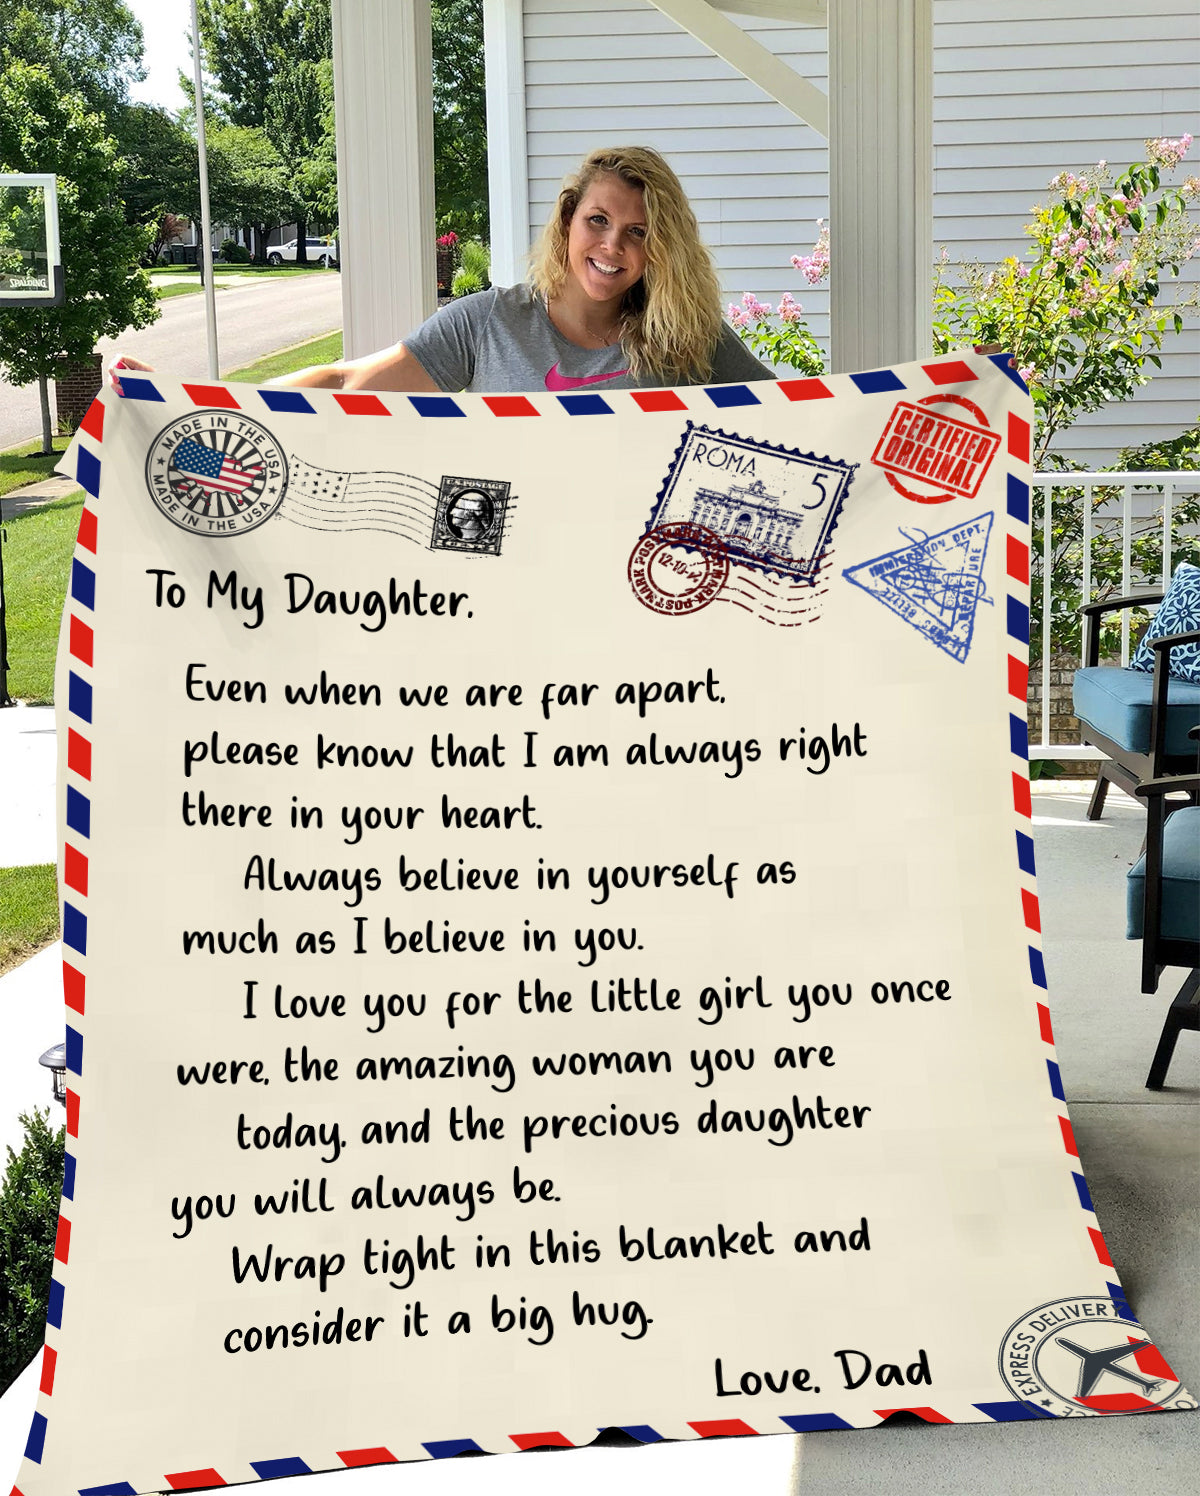 SPALDING
MADE IN THE USA
MADE IN THE USA
U.S. POSTAGE
ROMA
5
CERTIFIED
ORIGINAL
IMMIGRATION DEPT.
DEPARTURE
BELIZE
To My Daughter,
Even when we are far apart,
please know that I am always right
there in your heart.
Always believe in yourself as
much as I believe in you.
I love you for the little girl you once
were, the amazing woman you are
today, and the precious daughter
you will always be.
Wrap tight in this blanket and
consider it a big hug.
Love, Dad
EXPRESS DELIVERY